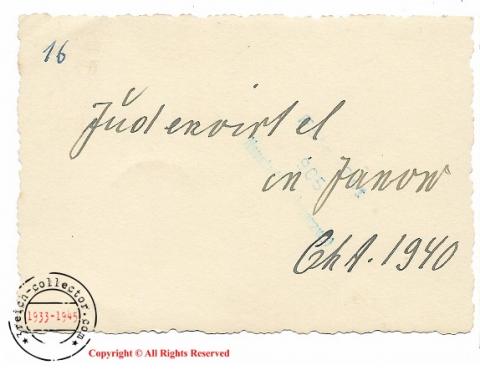 16
Judenvirtel
in Janow
Okt. 1940
605
3reich-collector.com
1933-1945
Copyright © All Rights Reserved